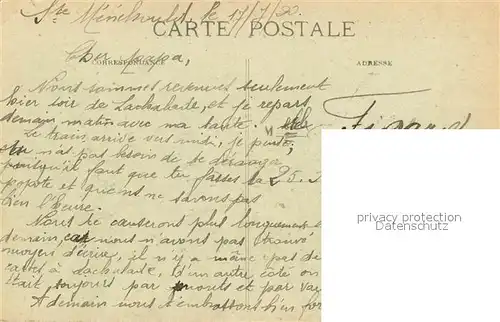 Ste Ménehould, le 17/7/20
CARTE POSTALE
CORRESPONDANCE
ADRESSE
Cher papa,
Nous sommes revenues seulement
hier soir de Lachalade, et je repars
demain matin avec ma tante.
M
Le train arrive vers midi, je pense,
tu n'as pas besoin de te déranger
puisqu'il faut que tu fasses ta
25
popote et que ns ne savons pas
bien l'heure.
Nous te causerons plus longuement
demain, car nous n'avons pas trouvé
moyen d'écrire, il n'y a même pas de
cartes à Lachalade, d'un autre côté on
était toujours par monts et par vaux
A demain nous t'embrassons bien fort
privacy protection
Datenschutz